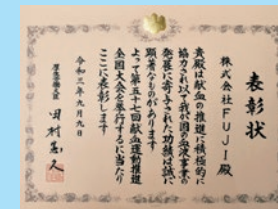 表彰状
株式会社FUJI殿
貴殿は献血の推進に積極的に
協力され以て我が国の血液事業の
発展に寄与された功績は誠に
顕著なものがあります
よって第五十七回献血運動推進
全国大会を挙行するに当たり
ここに表彰します
令和三年九月九日
厚生労働大臣 田村憲久